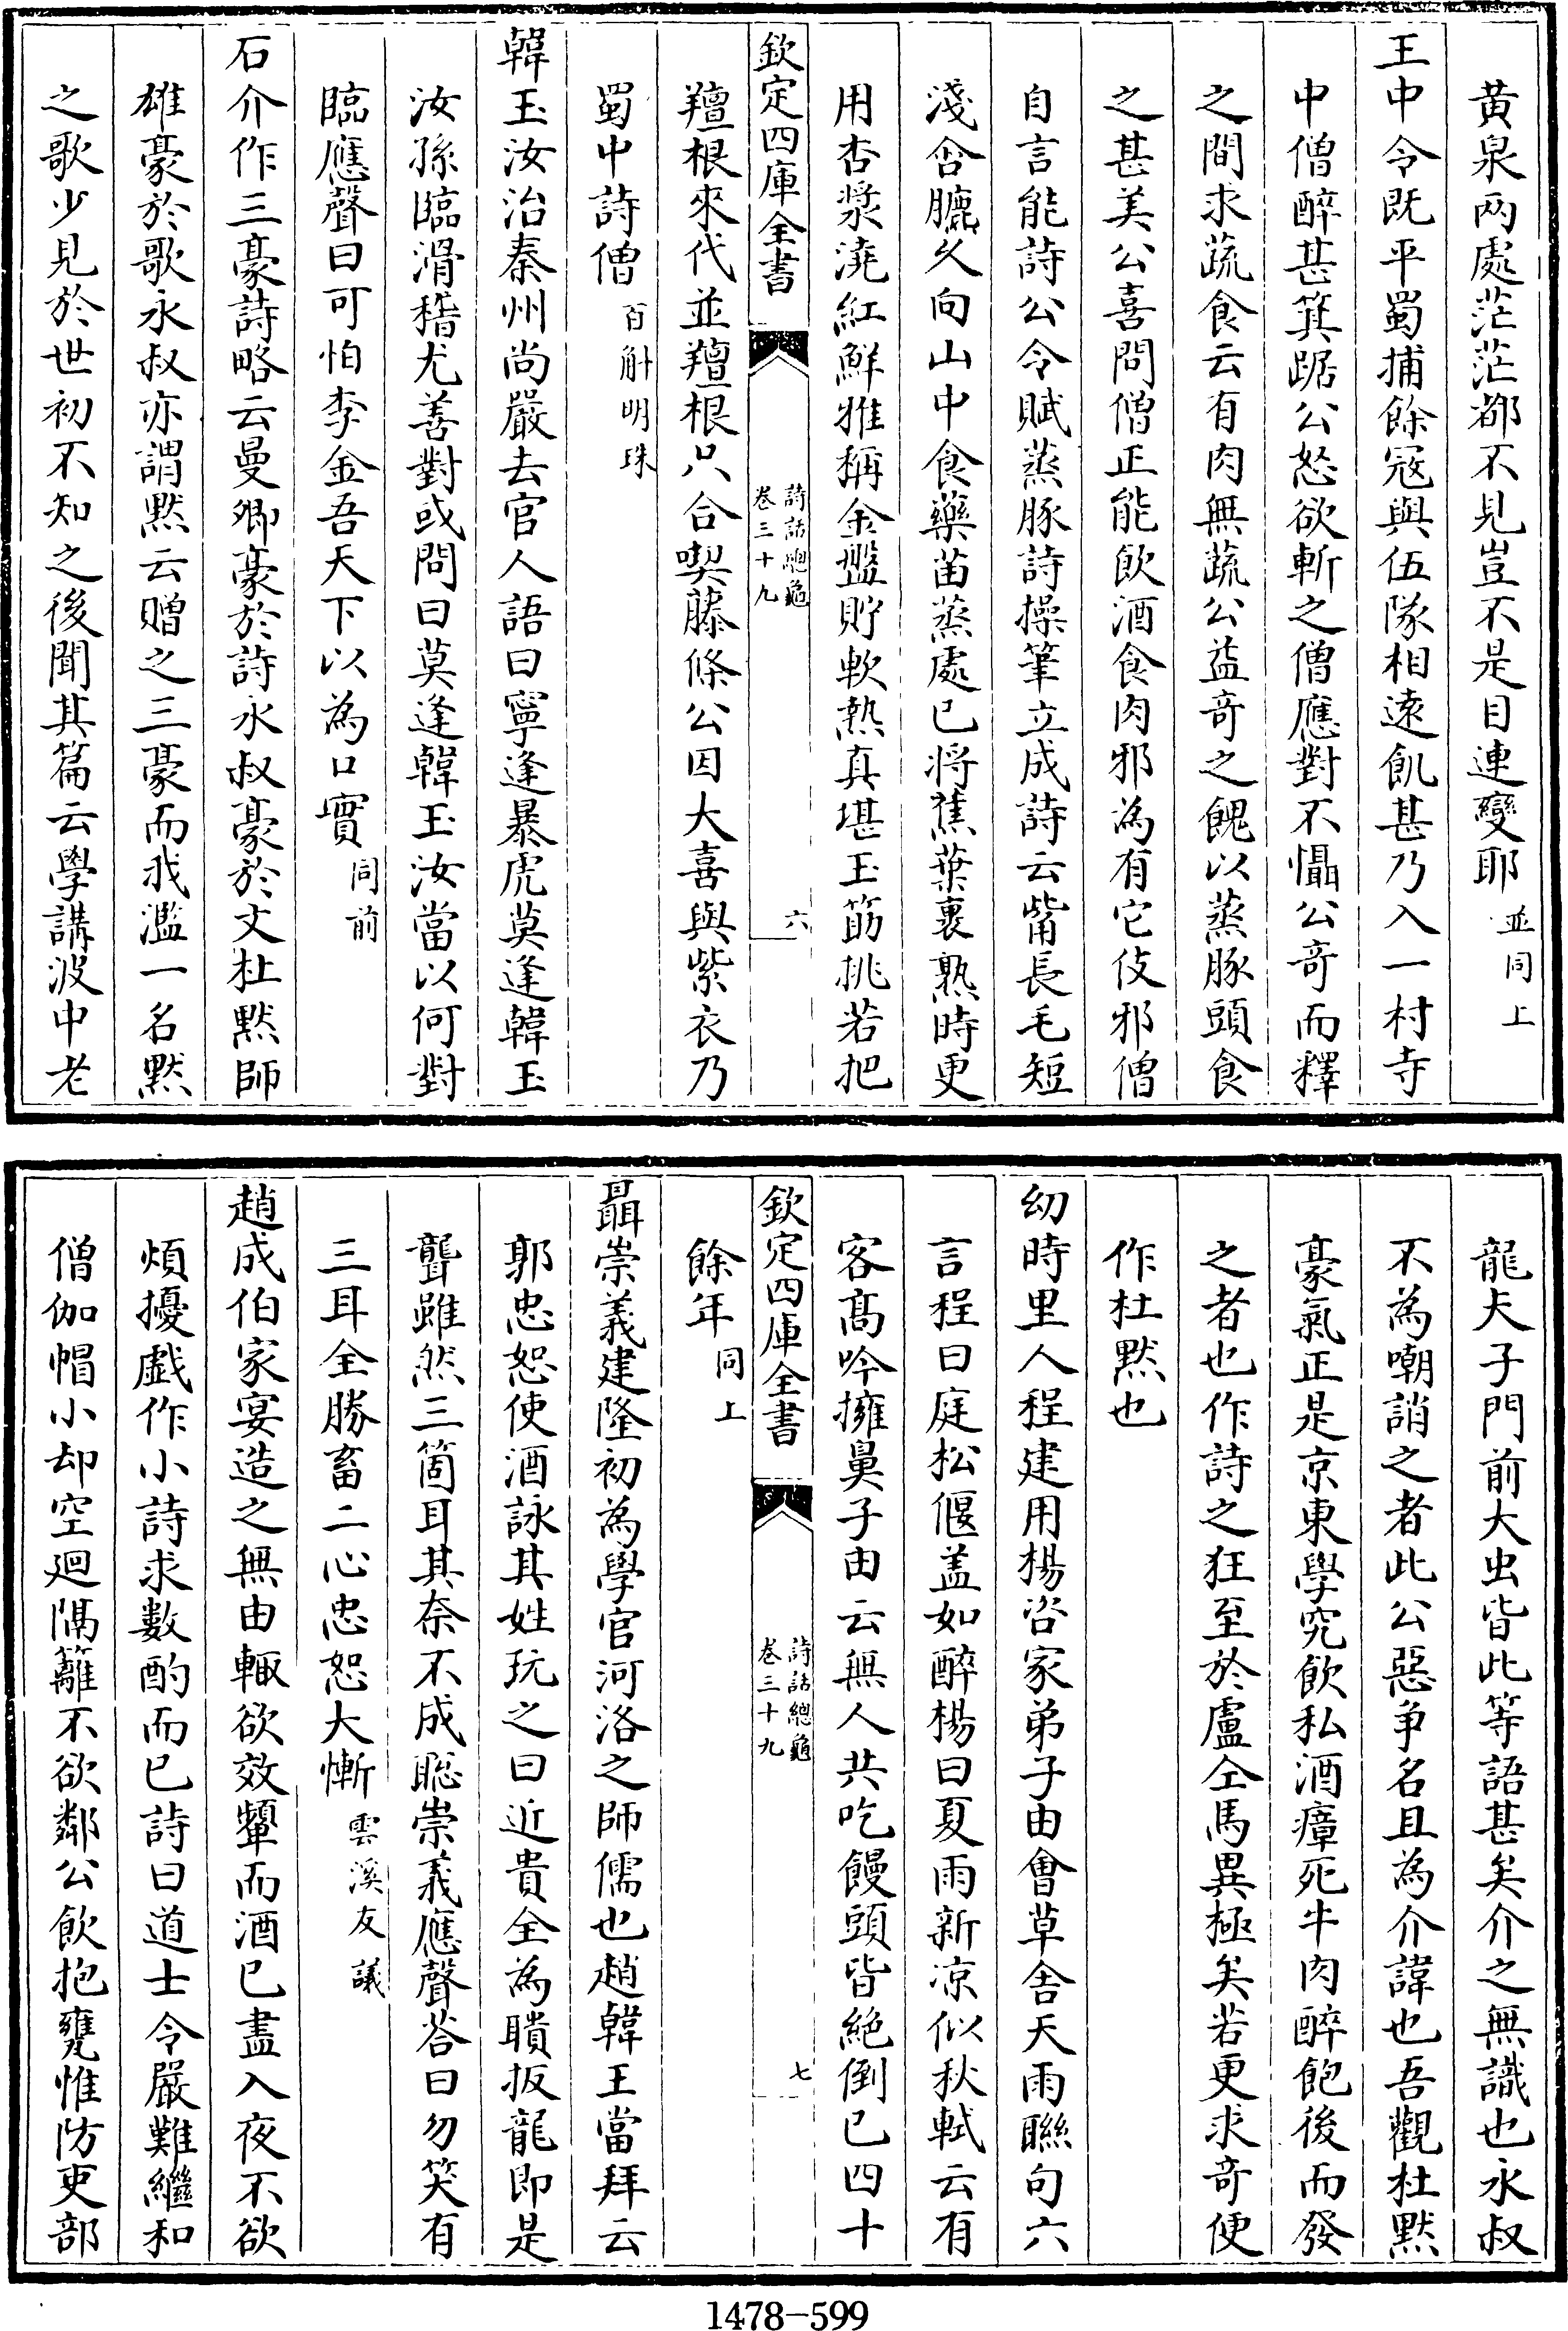 黄泉兩處茫茫都不見豈不是目連變耶並同上
王中令既平蜀捕餘寇與伍隊相遠飢甚乃入一村寺
中僧醉甚箕踞公怒欲斬之僧應對不懾公奇而釋
之問求蔬食云有肉無蔬公益奇之餽以蒸豚頭食
之甚美公喜問僧正能飲酒食肉邪為有它伎邪僧
自言能詩公令賦蒸豚詩操筆立成詩云觜長毛短
淺含臕久向山中食藥苗蒸處已將蕉葉裹熟時更
用杏漿澆紅鮮雅稱金盤貯軟熟真堪玉筯挑若把
欽定四庫全書
詩話總龜
卷三十九
六
羶根來代並羶根只合喫藤條公因大喜與紫衣乃
蜀中詩僧百斛明珠
韓玉汝治秦州尚嚴去官人語曰寧逢暴虎莫逢韓玉
汝孫臨滑稽尤善對或問曰莫逢韓玉汝當以何對
臨應聲曰可怕李金吾天下以為口實同前
石介作三豪詩略云曼卿豪於詩永叔豪於文杜黙師
雄豪於歌永叔亦謂黙云贈之三豪而我濫一名黙
之歌少見於世初不知之後聞其篇云學講波中老
龍夫子門前大虫皆此等語甚矣介之無識也永叔
不為嘲誚之者此公惡争名且為介諱也吾觀杜黙
豪氣正是京東學究飲私酒瘴死牛肉醉飽後而發
之者也作詩之狂至於盧仝馬異極矣若更求奇便
作杜黙也
幼時里人程建用楊咨家弟子由會草舍天雨聯句六
言程曰庭松偃盖如醉楊曰夏雨新凉似秋軾云有
客髙吟擁鼻子由云無人共吃饅頭皆絶倒已四十
欽定四庫全書
詩話總龜
卷三十九
七
餘年同上
聶崇義建隆初為學官河洛之師儒也趙韓王當拜云
郭忠恕使酒詠其姓玩之曰近貴全為聵扳龍即是
聾雖然三箇耳其奈不成聡崇義應聲荅曰勿笑有
三耳全勝畜二心忠恕大慚雲溪友議
趙成伯家宴造之無由輙欲效顰而酒已盡入夜不欲
煩擾戲作小詩求數酌而已詩曰道士令嚴難繼和
僧伽帽小却空廻隔籬不欲鄰公飲抱甕惟防吏部
1478-599